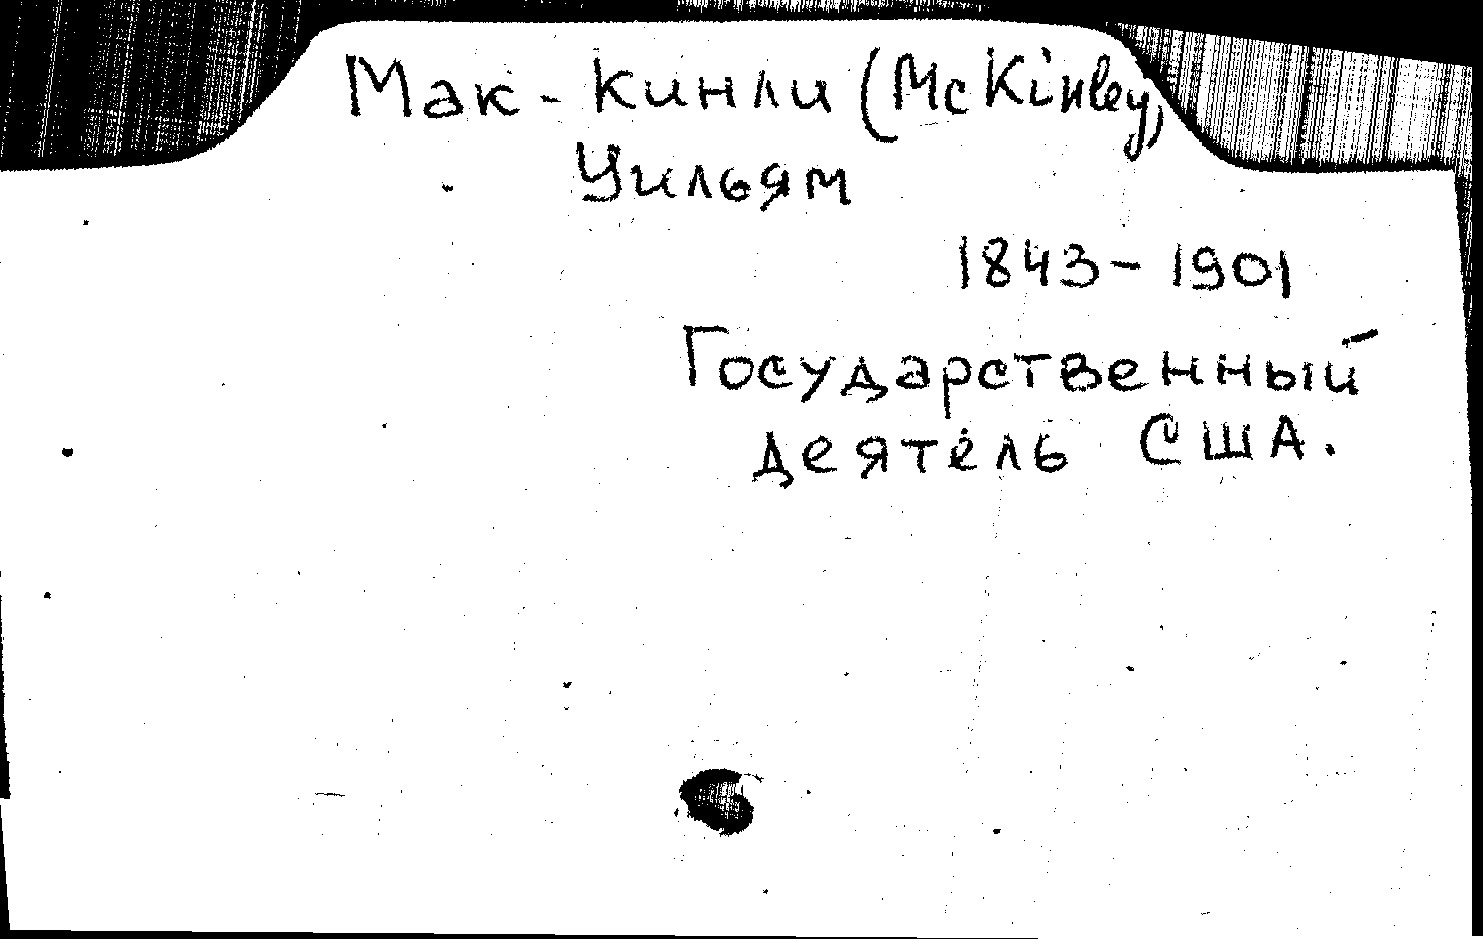 Мак-Кинли (McKinley)
Уильям
1843-1901
Государственный
деятель США.